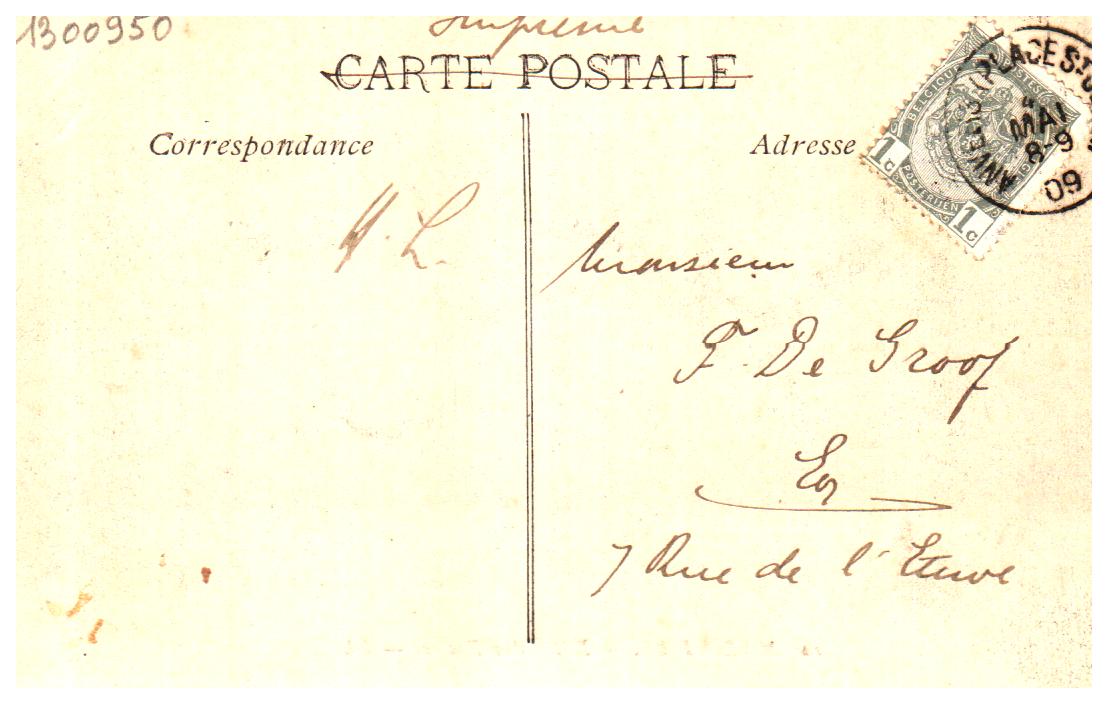 1300950
Imprimé
CARTE POSTALE
Correspondance
Adresse
BELGIQUE
POSTES
1c
POSTERIJEN
1c
ANVERS (PLACE St
4
MAI
8-9
09
H. L.
Monsieur
F. De Groof
EV
7 Rue de l'Etuve